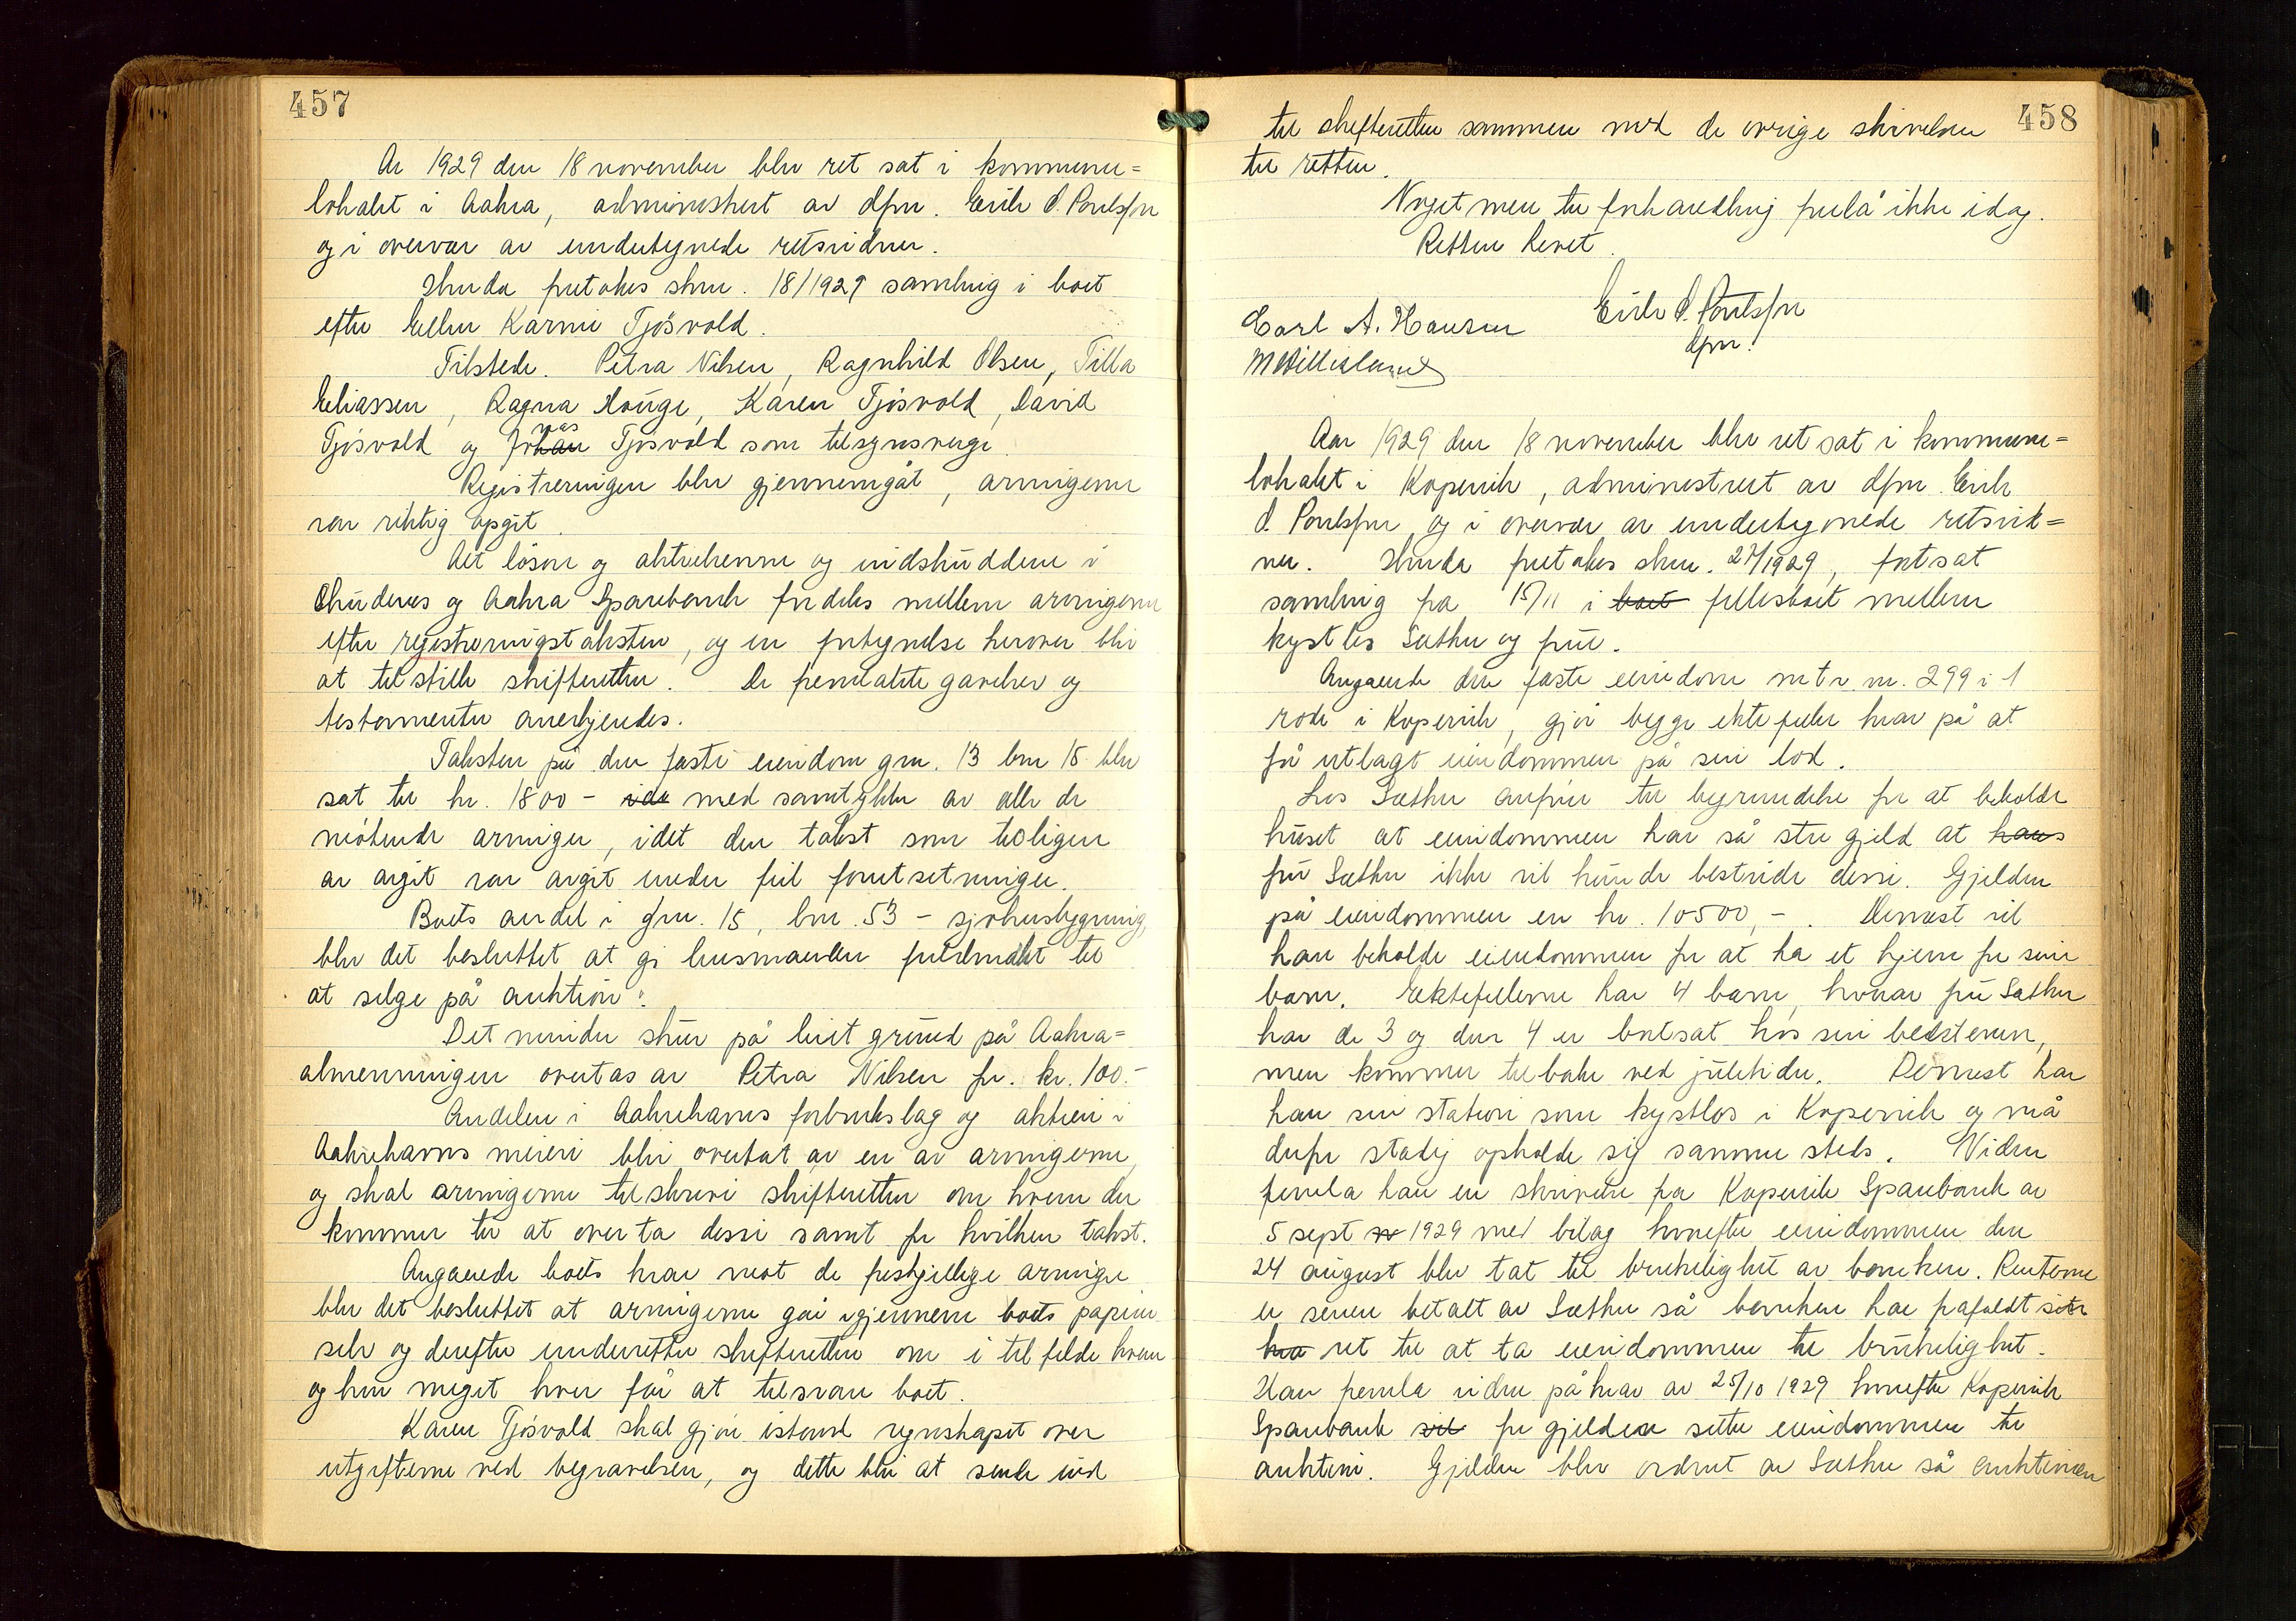 457
År 1929 den 18 november blev ret sat i kommune=
lokalet i Aakra, administrert av dfm. Eirik S. Poulsson
og i overvær av undertegnede retsvidner.
Herunder foretokes skm. 18/1929 samling i boet
efter Ellen Karine Tjösvold.
Tilstede. Petra Nilsen, Ragnhild Olsen, Tilla
Eliassen, Ragna Houge, Karen Tjösvold, David
Tjösvold og Johan nas Tjösvold som tilsynsverge.
Registreringen blev gjennemgåt, arvingene
var riktig opgit.
Alt lösöre og aktiekenne og indskuddene i
Skudenes og Aakra Sparebank fordeles mellem arvingene
efter registreringstaksten, og en fortegnelse herover blir
at tilstille skifteretten. De fremlakte gavebrev og
testamenter anerkjendes.
Taksten på den faste eiendom gnr. 13 bnr 15 blev
sat til kr. 1800 - ide med samtykke av alle de
mötende arvinger, idet den takst som tidligere
er avgit var avgit under feil forutsetninger.
Boets andel i gnr. 15, bnr. 53 - sjöhusbygning,
blev det besluttet at gi lensmanden fuldmakt til
at selge på auktion.
Det mindre skur på leiet grund på Aakra=
almenningen overtas av Petra Nilsen for kr. 100.-
Andelen i Aakrehavns forbrukslag og aktien i
Aakrehavns meieri blir overtat av en av arvingerne,
og skal arvingerne tilskrive skifteretten om hvem der
kommer til at overta disse samt for hvilken takst.
Angaaende boets krav mot de forskjellige arvinger
blev det besluttet at arvingerne går igjennem boets papirer
selv og derefter underretter skifteretten om i tilfelde hvem
og hvor meget hver får at tilsvare boet.
Karen Tjösvold skal gjöre istand regnskapet over
utgifterne ved begravelsen, og dette blir at sende ind
458
til skifteretten sammen med de övrige skrivelser
til retten.
Noget mere til forhandling forelå ikke idag.
Retten hevet.
Eirik S. Poulsson
dfm.
Carl A. Hansen
Aar 1929 den 18 november blev ret sat i kommune=
lokalet i Kopervik, administrert av dfm. Eirik
S. Poulsson og i overvær av undertegnede retsvid=
ner. Herunder foretokes skm. 27/1929, fortsat
samling fra 15/11 i boet fellesboet mellem
kystlos Sæther og frue.
Angaaende den faste eiendom mtr. nr. 299 i 1
rode i Kopervik, gjör begge ektefeller krav på at
få utlagt eiendommen på sin lod.
Los Sæther anförer til begrundelse for at beholde
huset at eiendommen har så stor gjeld at hans
fru Sæther ikke vil kunde bestride disse. Gjelden
på eiendommen er kr. 10500,-. Dernæst vil
han beholde eiendommen for at ha et hjem for sine
barn. Ektefellerne har 4 barn, hvorav fru Sæther
har de 3 og den 4 er bortsat hos sine besteforeldre,
men kommer tilbake ved juletider. Dernæst har
han sin station som kystlos i Kopervik og må
derfor stadig opholde sig samme steds. Videre
fremla han en skrivelse fra Kopervik Sparebank av
5 sept av 1929 med bilag hvorefter eiendommen den
24 august blev tat til brukelighet av banken. Renterne
er senere betalt av Sæther så banken har frafaldt sin
ha ret til at ta eiendommen til brukelighet.
Han fremla videre påkrav av 25/10 1929 hvorefter Kopervik
Sparebank vil for gjelden sette eiendommen til
auktion. Gjelden blev ordnet av Sæther så auktionen